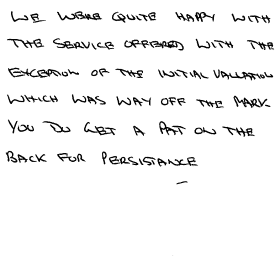 WE WERE QUITE HAPPY WITH
THE SERVICE OFFERED WITH THE
EXCEPTION OF THE INITIAL VALUATION
WHICH WAS WAY OFF THE MARK
YOU DO GET A PAT ON THE
BACK FOR PERSISTANCE